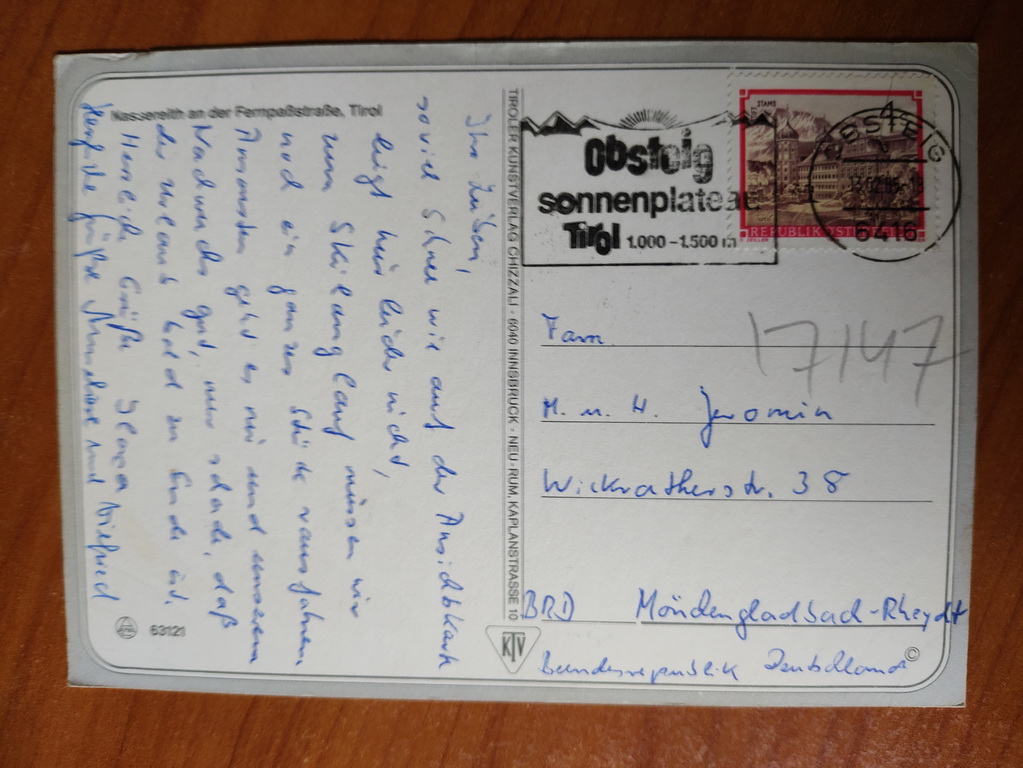 Nassereith an der Fernpaßstraße, Tirol
Ihr Lieben,
soviel Schnee wie auf der Ansichtskarte
liegt hier leider nicht,
zum Skilanglauf müssen wir
noch ein ganzes Stück rausfahren
Ansonsten geht es mir und unserem
Nachwuchs gut, nur schade, daß
der Urlaub bald zu Ende ist.
Herzliche Grüße
Herzliche Grüße und
63121
TIROLER KUNSTVERLAG CHIZZALI · 6040 INNSBRUCK - NEU-RUM, KAPLANSTRASSE 10
KTV
Obsteig
sonnenplateau
Tirol 1.000 - 1.500 m
STAMS
4
REPUBLIK ÖSTERREICH
OBSTEIG
6416
17147
Fam.
M. u. H. Jeromin
Wickratherstr. 38
BRD Möndengladbad-Rheydt
Bundesrepublik Deutschland
©